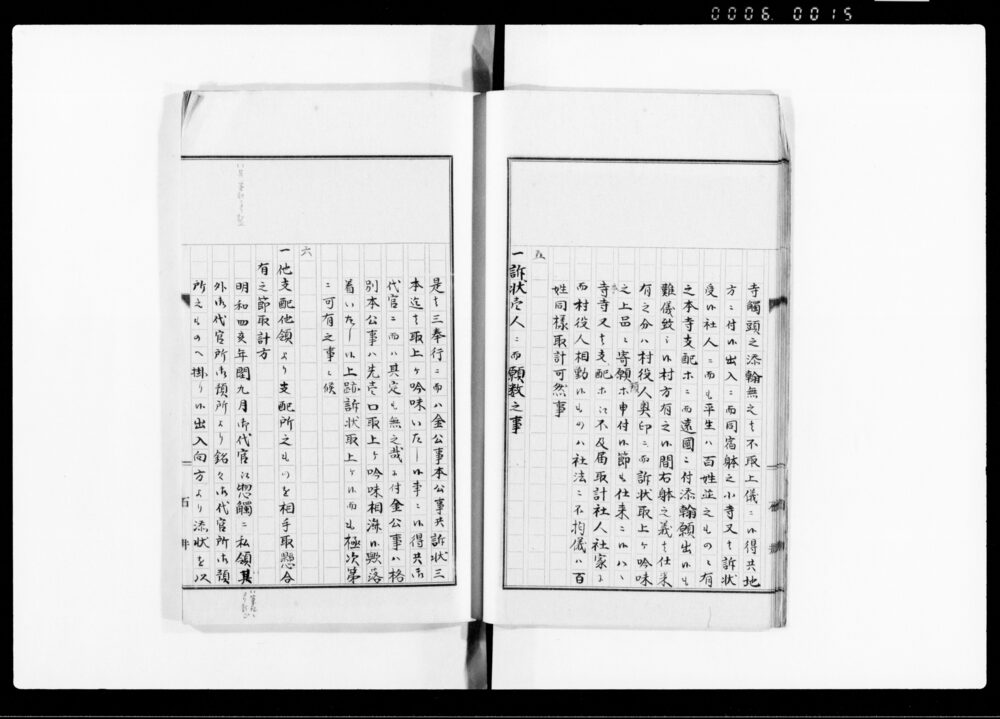 0006. 0015
寺觸頭之添翰無之ハ不取上儀ニ候得共地
方ニ付候出入ニ而同宿躰之小寺又ハ訴状
受候社人ニ而も平生ハ百姓並之ものニ有
之本寺支配ホニ而遠國ニ付添翰願出候も
難儀致候村方有之候間右躰之義ハ仕来
有之分ハ村役人奥印ニ而訴状取上ケ吟味
之上品ニ寄願ホ申付候節も仕来ニ候ハヽ
寺寺又ハ支配ホ江不及届取計社人社家ニ
而村役人相勤候ものハ社法ニ不拘儀ハ百
姓同様取計可然事
五
一訴状壱人ニ而願数之事
是ハ三奉行ニ而ハ金公事本公事共訴状三
本迄ハ取上ケ吟味いたし候事ニ候得共御
代官ニ而ハ其定も無之哉ニ付金公事ハ格
別本公事ハ先壱口取上ケ吟味相済候歟落
着いたし候上跡訴状取上ケ候而も極次第
ニ可有之事ニ候
六
一他支配他領より支配所之ものを相手取懸合
有之節取計方
明和四亥年閏九月御代官江惣觸ニ私領其
外御代官所御預所より銘々御代官所御預
所之ものへ掛り候出入向方より添状を以